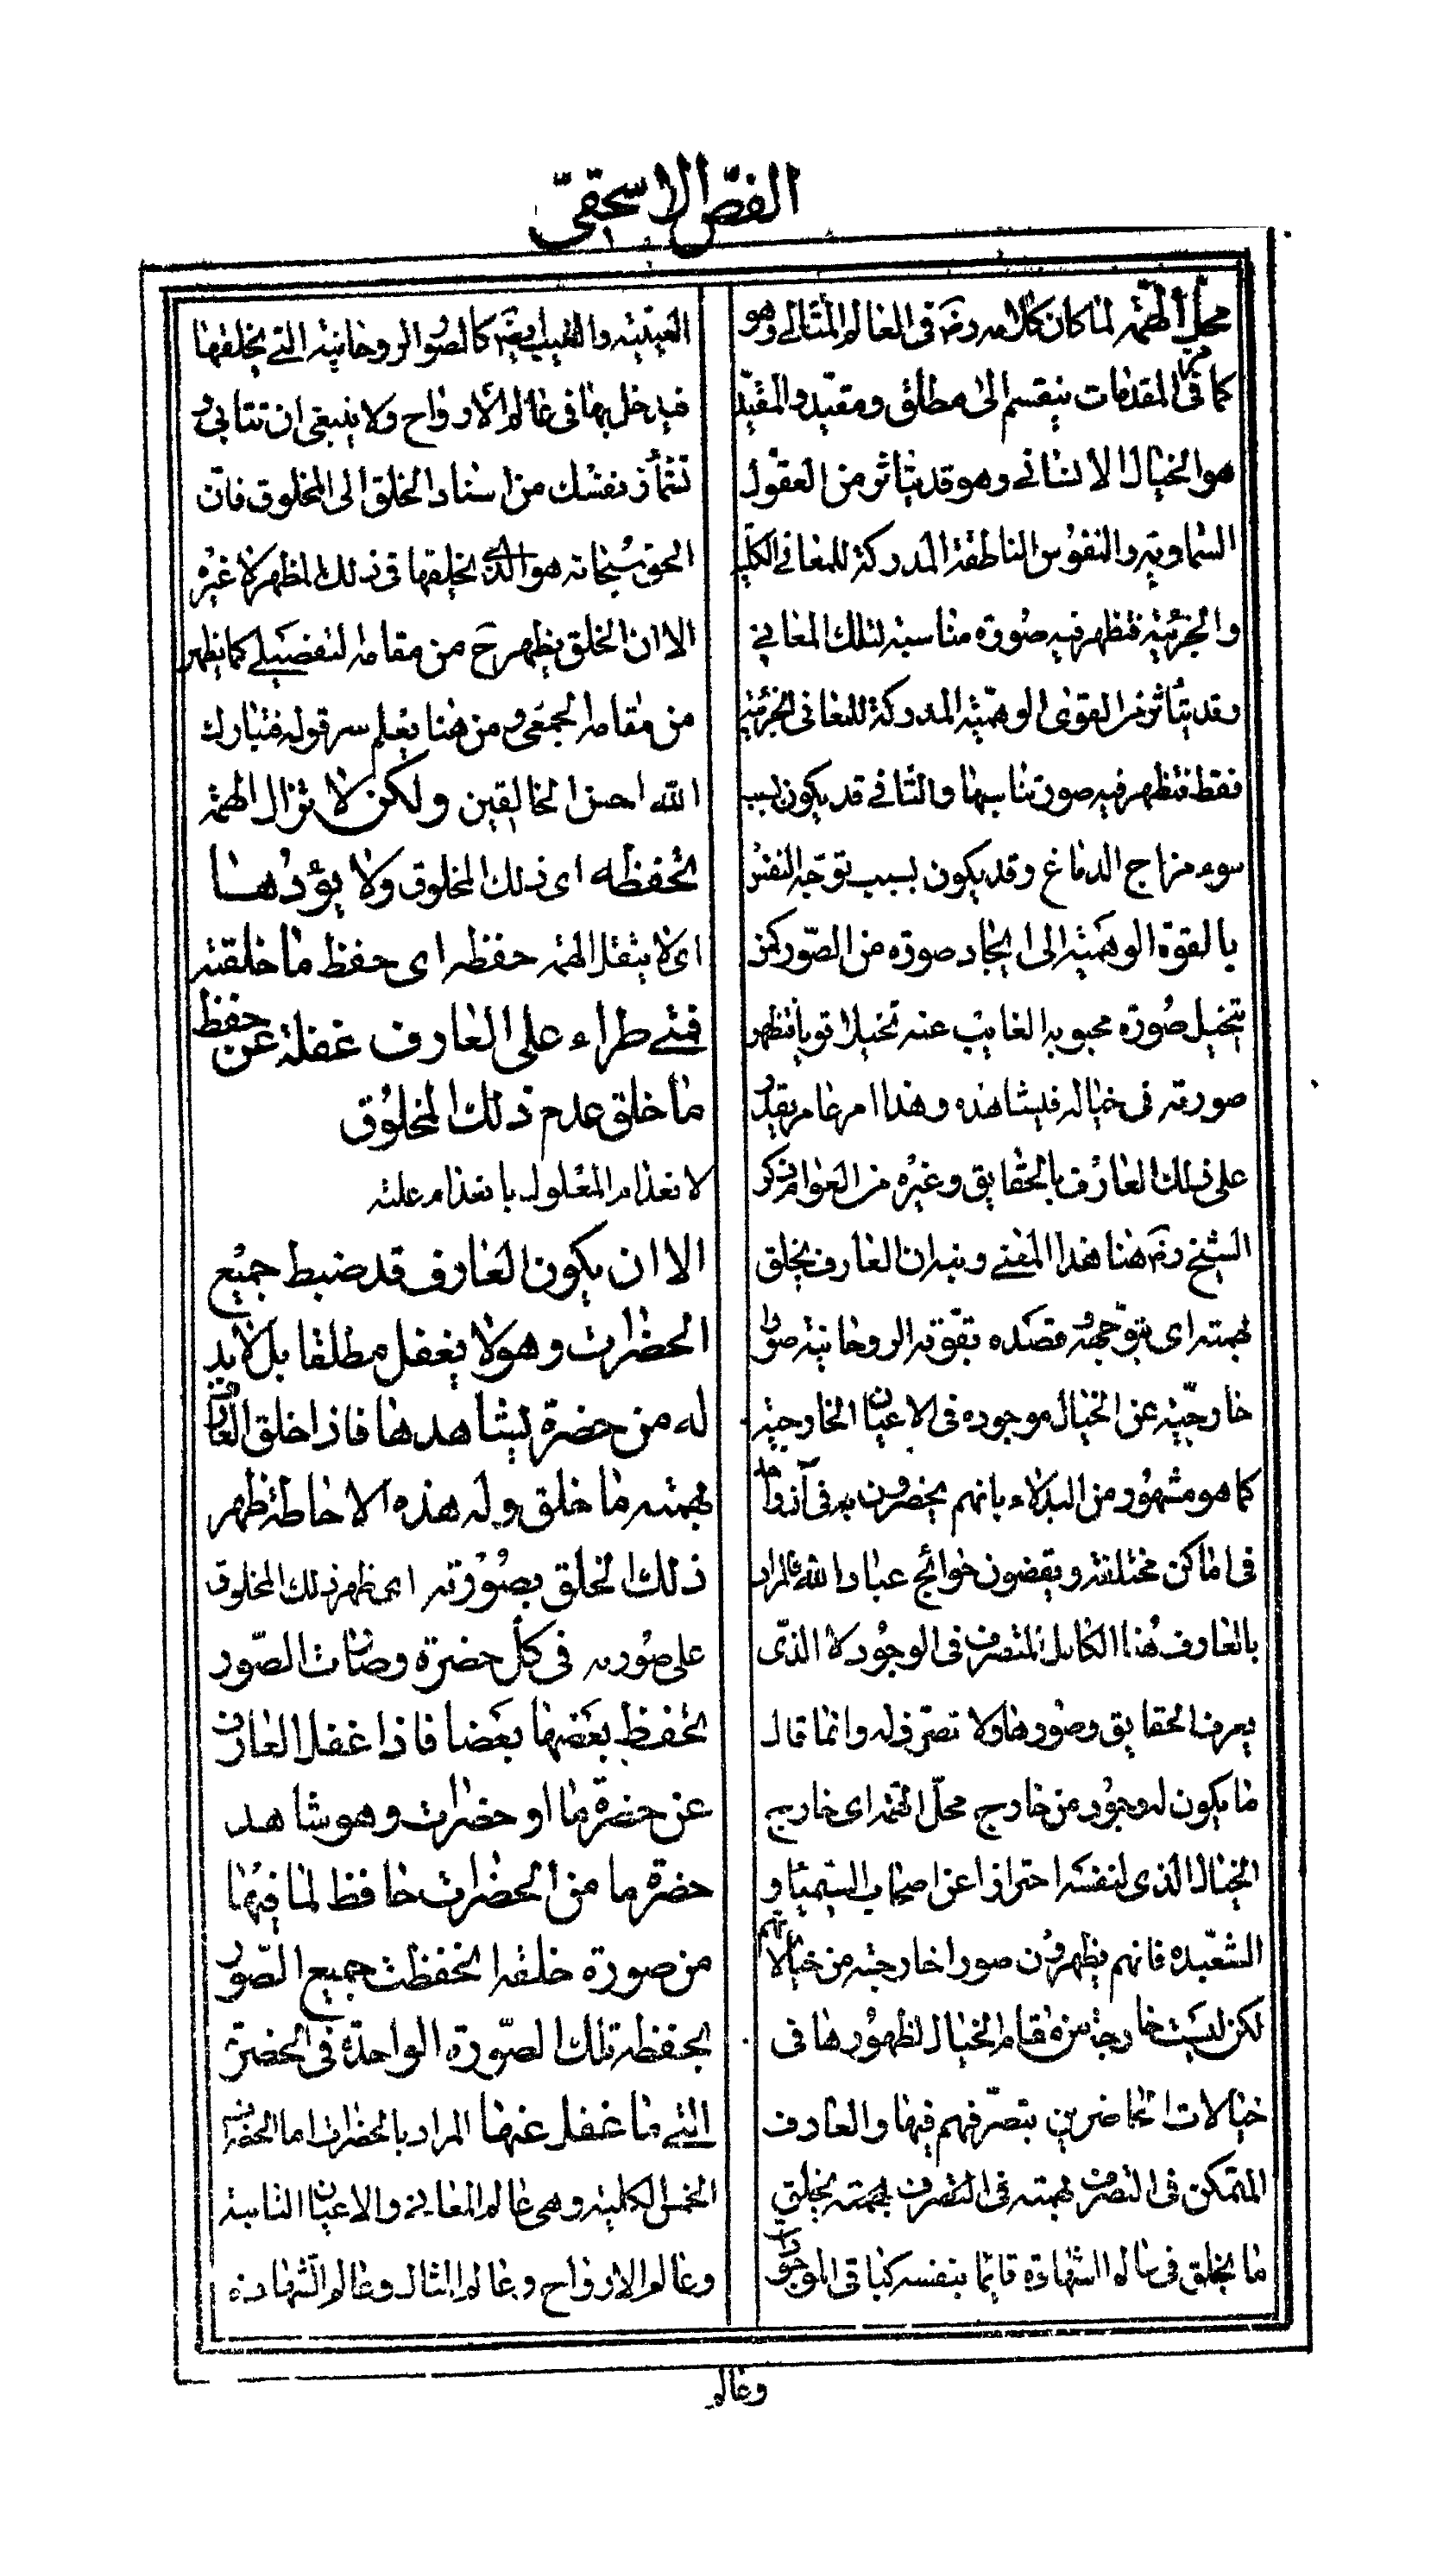 الفصّ الاسحقیّ
محلّ الهمّة لما كان كلامه رضۤ فی العالم المثالی وهو
كما مرّ فی المقدمات ینقسم الی مطلق ومقیّد والمقیّد
هو الخیال الانسانی وهو قد یتاثر من العقول
السماویّه والنفوس الناطقة المدركة للمعانی الكلّیه
والجزئیة فتظهر فیه صورة مناسبة لتلك المعانی
وقد یتأثر من القوی الوهمیّة المدركة للمعانی الجزئیه
فقط فتظهر فیه صورة تناسبها والثانی قد یكون بسبب
سوء مزاج الدماغ وقد یكون بسبب توجّه النفس
بالقوّة الوهمیّة الی ایجاد صورة من الصّور كمن
یتخیل صورة محبوبه الغایب عنه تخیلا قویا فتظهر
صورته فی خیاله فیشاهده وهذا امر عام یقدر
علی ذلك العارف بالحقایق وغیره من العوام ذكر
الشیخ رضۤ هنا هذا المعنی وبین ان العارف یخلق
بهمته ای بتوجّهه وقصده بقوّته الروحانیة صورا
خارجیّة عن الخیال موجودة فی الاعیان الخارجیة
كما هو مشهور من البدلاء بانهم یحضرون فی آن واحد
فی اماكن مختلفة ویقضون حوائج عباد الله فالمراد
بالعارف هنا الكامل المتصرف فی الوجود لا الذّی
یعرف الحقایق وصورها ولا تصرّف له وانما قال
ما یكون له وجود من خارج محلّ الهمّة ای خارج
الخیال الذی لنفسه احترازا عن اصحاب السّیمیا و
الشعبذه فانهم یظهرون صورا خارجة من خیالاتهم
لكن لیست خارجة من مقام الخیال لظهورها فی
خیالات الحاضرین بتصرّفهم فیها والعارف
المتمكن فی التصرف بهمته فی التصرف بهمته یخلق
ما یخلق فی عالم الشهادة قایما بنفسه كباقی الموجودات
العینیّة والغیبیة ایضۤ كالصور الروحانیّة التی یخلقها
فیدخل بها فی عالم الارواح ولا ینبغی ان تتابی و
تشمأز نفسك من اسناد الخلق الی المخلوق فانّ
الحق سبحانه هو الذی یخلقها فی ذلك المظهر لا غیره
الا ان الخلق یظهر حۤ من مقامه التفصیلی كما یظهر
من مقامه الجمعی ومن هنا یعلم سر قوله فتبارك
الله احسن الخالقین ولكن لا تزال الهمّة
تحفظه ای ذلك المخلوق ولا یؤدها
ای لا یثقل الهمّه حفظه ای حفظ ما خلقته
فمتی طراء علی العارف غفلة عن حفظ
ما خلق عدم ذلك المخلوق
لانعدام المعلول بانعدام علته
الا ان یكون العارف قد ضبط جمیع
الحضرات وهو لا یغفل مطلقا بل لابد
له من حضرة یشاهدها فاذا خلق العارف
بهمته ما خلق وله هذه الاحاطة ظهر
ذلك الخلق بصورته ای ظهر ذلك المخلوق
علی صورته فی كل حضرة وصارت الصّور
تحفظ بعضها بعضا فاذا غفل العارف
عن حضرة ما او حضرات وهو شاهد
حضرة ما من الحضرات حافظ لما فیها
من صورة خلقه انحفظت جمیع الصّور
بحفظه تلك الصّورة الواحدة فی الحضرة
التی ما غفل عنها المراد بالحضرات اما الحضرات
الخمس الكلیة وهی عالم المعانی والاعیان الثابتة
وعالم الارواح وعالم المثال وعالم الشّهادة
وعالم